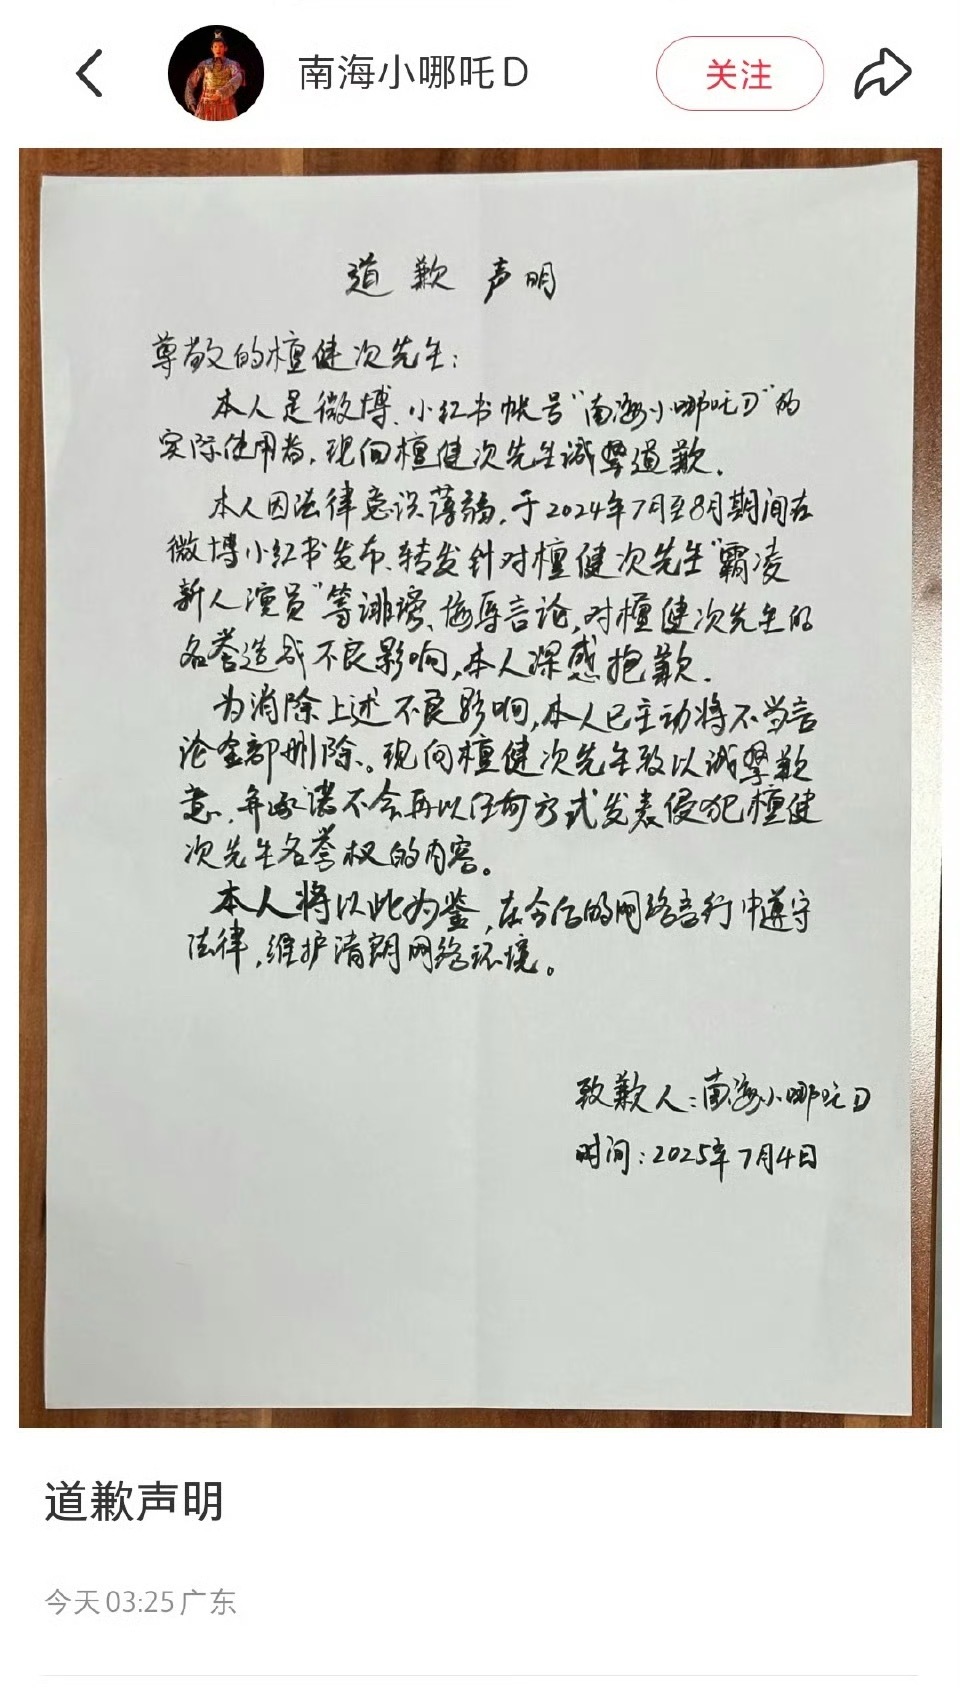 南海小哪吒D
关注
道歉声明
尊敬的檀健次先生：
本人是微博、小红书帐号“南海小哪吒D”的
实际使用者，现向檀健次先生诚挚道歉.
本人因法律意识薄弱，于2024年7月至8月期间在
微博小红书发布、转发针对檀健次先生“霸凌
新人演员”等诽谤、侮辱言论，对檀健次先生的
名誉造成不良影响，本人深感抱歉.
为消除上述不良影响，本人已主动将不当言
论全部删除。现向檀健次先生致以诚挚歉
意，并承诺不会再以任何方式发表侵犯檀健
次先生名誉权的内容。
本人将以此为鉴，在今后的网络言行中遵守
法律，维护清朗网络环境。
致歉人：南海小哪吒D
时间：2025年7月4日
道歉声明
今天03:25广东